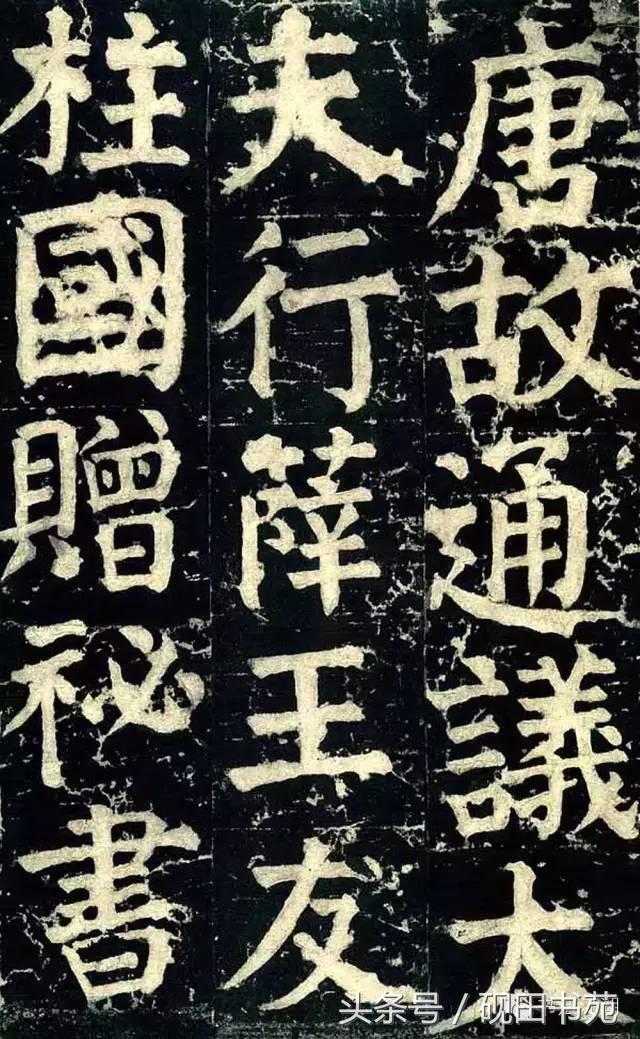 唐故通議大
夫行薛王友
柱國贈祕書
头条号／砚田书苑